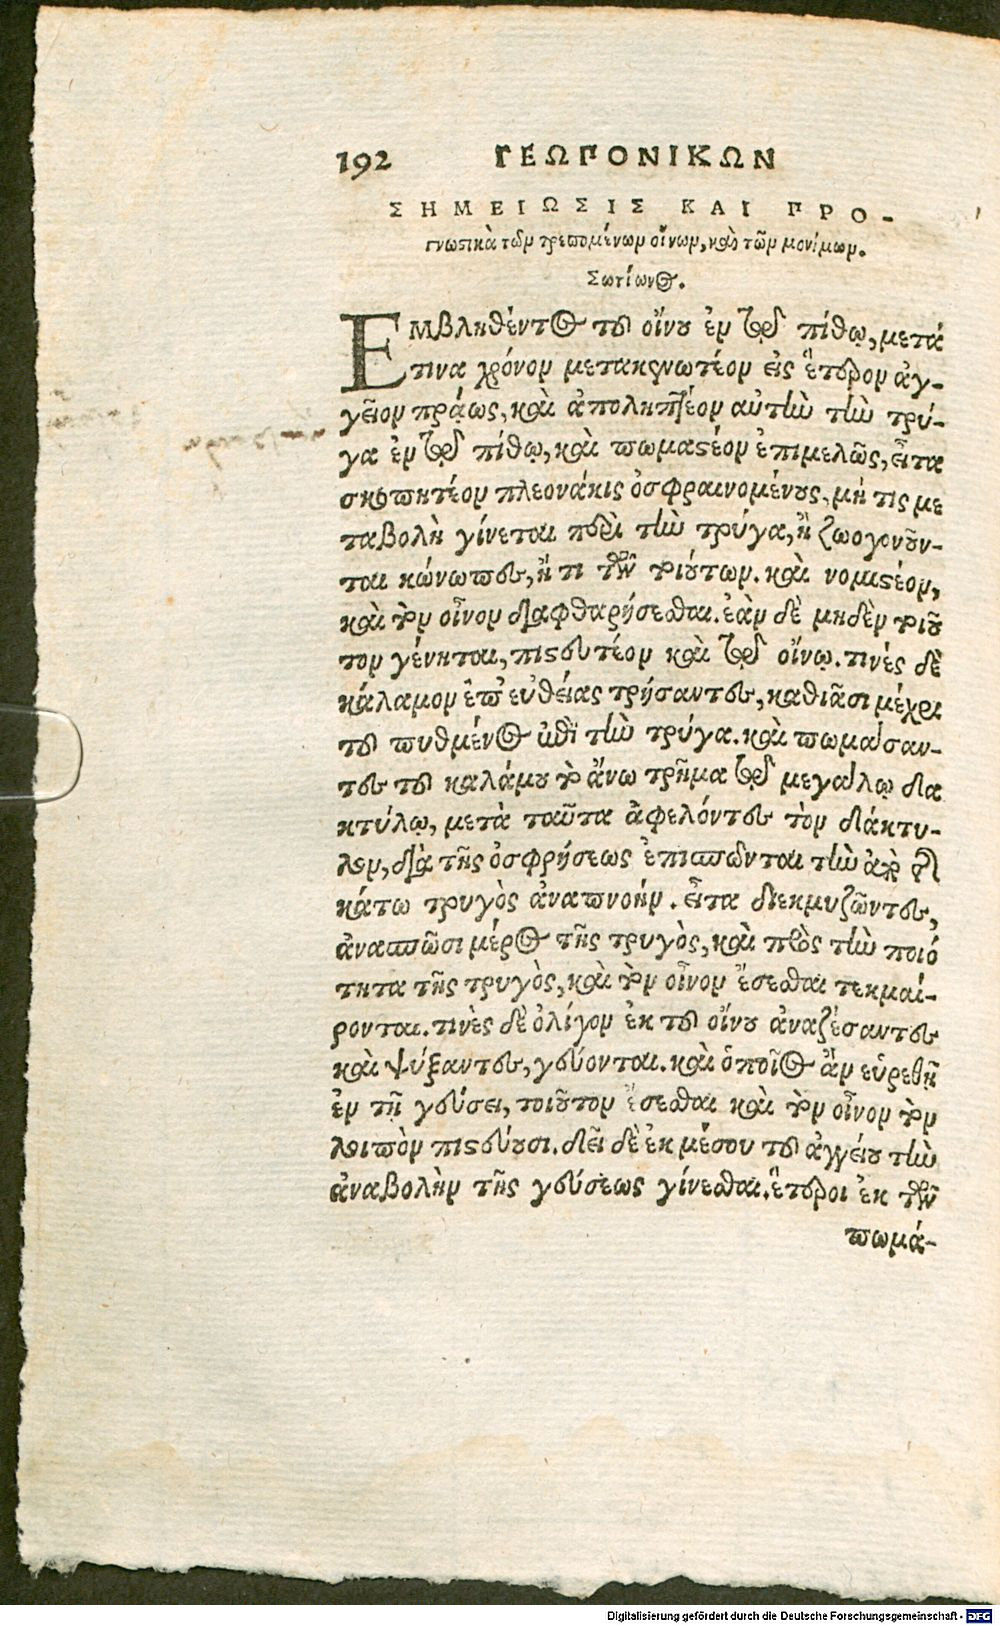 192 ΓΕΩΠΟΝΙΚΩΝ
ΣΗΜΕΙΩΣΙΣ ΚΑΙ ΠΡΟ-
γνωστικὰ τῶν τρεπομένων οἴνων, καὶ τῶν μονίμων.
Σωτίωνος.
ΕΜβληθέντος τοῦ οἴνου ἐν τῷ πίθῳ, μετά
τινα χρόνον μετακενωτέον εἰς ἕτερον ἀγ-
γεῖον πράως, καὶ ἀποληπτέον αὐτὴν τὴν τρύ-
γα ἐν τῷ πίθῳ, καὶ πωμαστέον ἐπιμελῶς, εἶτα
σκοπητέον πλεονάκις ὀσφραινομένους, μή τις με
ταβολὴ γίνεται περὶ τὴν τρύγα, ἢ ζωογονοῦν-
ται κώνωπες, ἤ τι τῶν τοιούτων. καὶ νομιστέον,
καὶ τὸν οἶνον διαφθαρήσεσθαι. ἐὰν δὲ μηδὲν τοιοῦ
τον γένηται, πιστευτέον καὶ τῷ οἴνῳ. τινές δὲ
κάλαμον ἐπ' εὐθείας τρήσαντες, καθιᾶσι μέχρι
τοῦ πυθμένος ἐπὶ τὴν τρύγα. καὶ πωμάσαν-
τες τοῦ καλάμου τὸ ἄνω τρῆμα τῷ μεγάλῳ δα
κτύλῳ, μετὰ ταῦτα ἀφελόντες τὸν δάκτυ-
λον, διὰ τῆς ὀσφρήσεως ἐπισπῶνται τὴν ἀπὸ τῆς
κάτω τρυγὸς ἀναπνοήν. εἶτα διεκμυζῶντες,
ἀνασπῶσι μέρος τῆς τρυγὸς, καὶ πρὸς τὴν ποιό
τητα τῆς τρυγὸς, καὶ τὸν οἶνον ἔσεσθαι τεκμαί-
ρονται. τινὲς δὲ ὀλίγον ἐκ τοῦ οἴνου ἀναζέσαντες
καὶ ψύξαντες, γεύονται. καὶ ὁποῖος ἂν εὑρεθῇ
ἐν τῇ γεύσει, τοιοῦτον ἔσεσθαι καὶ τὸν οἶνον τὸν
λοιπὸν πιστεύουσι. δεῖ δὲ ἐκ μέσου τοῦ ἀγγείου τὴν
ἀναβολὴν τῆς γεύσεως γίνεσθαι. ἕτεροι ἐκ τῶν
πωμά-
Digitalisierung gefördert durch die Deutsche Forschungsgemeinschaft - DFG